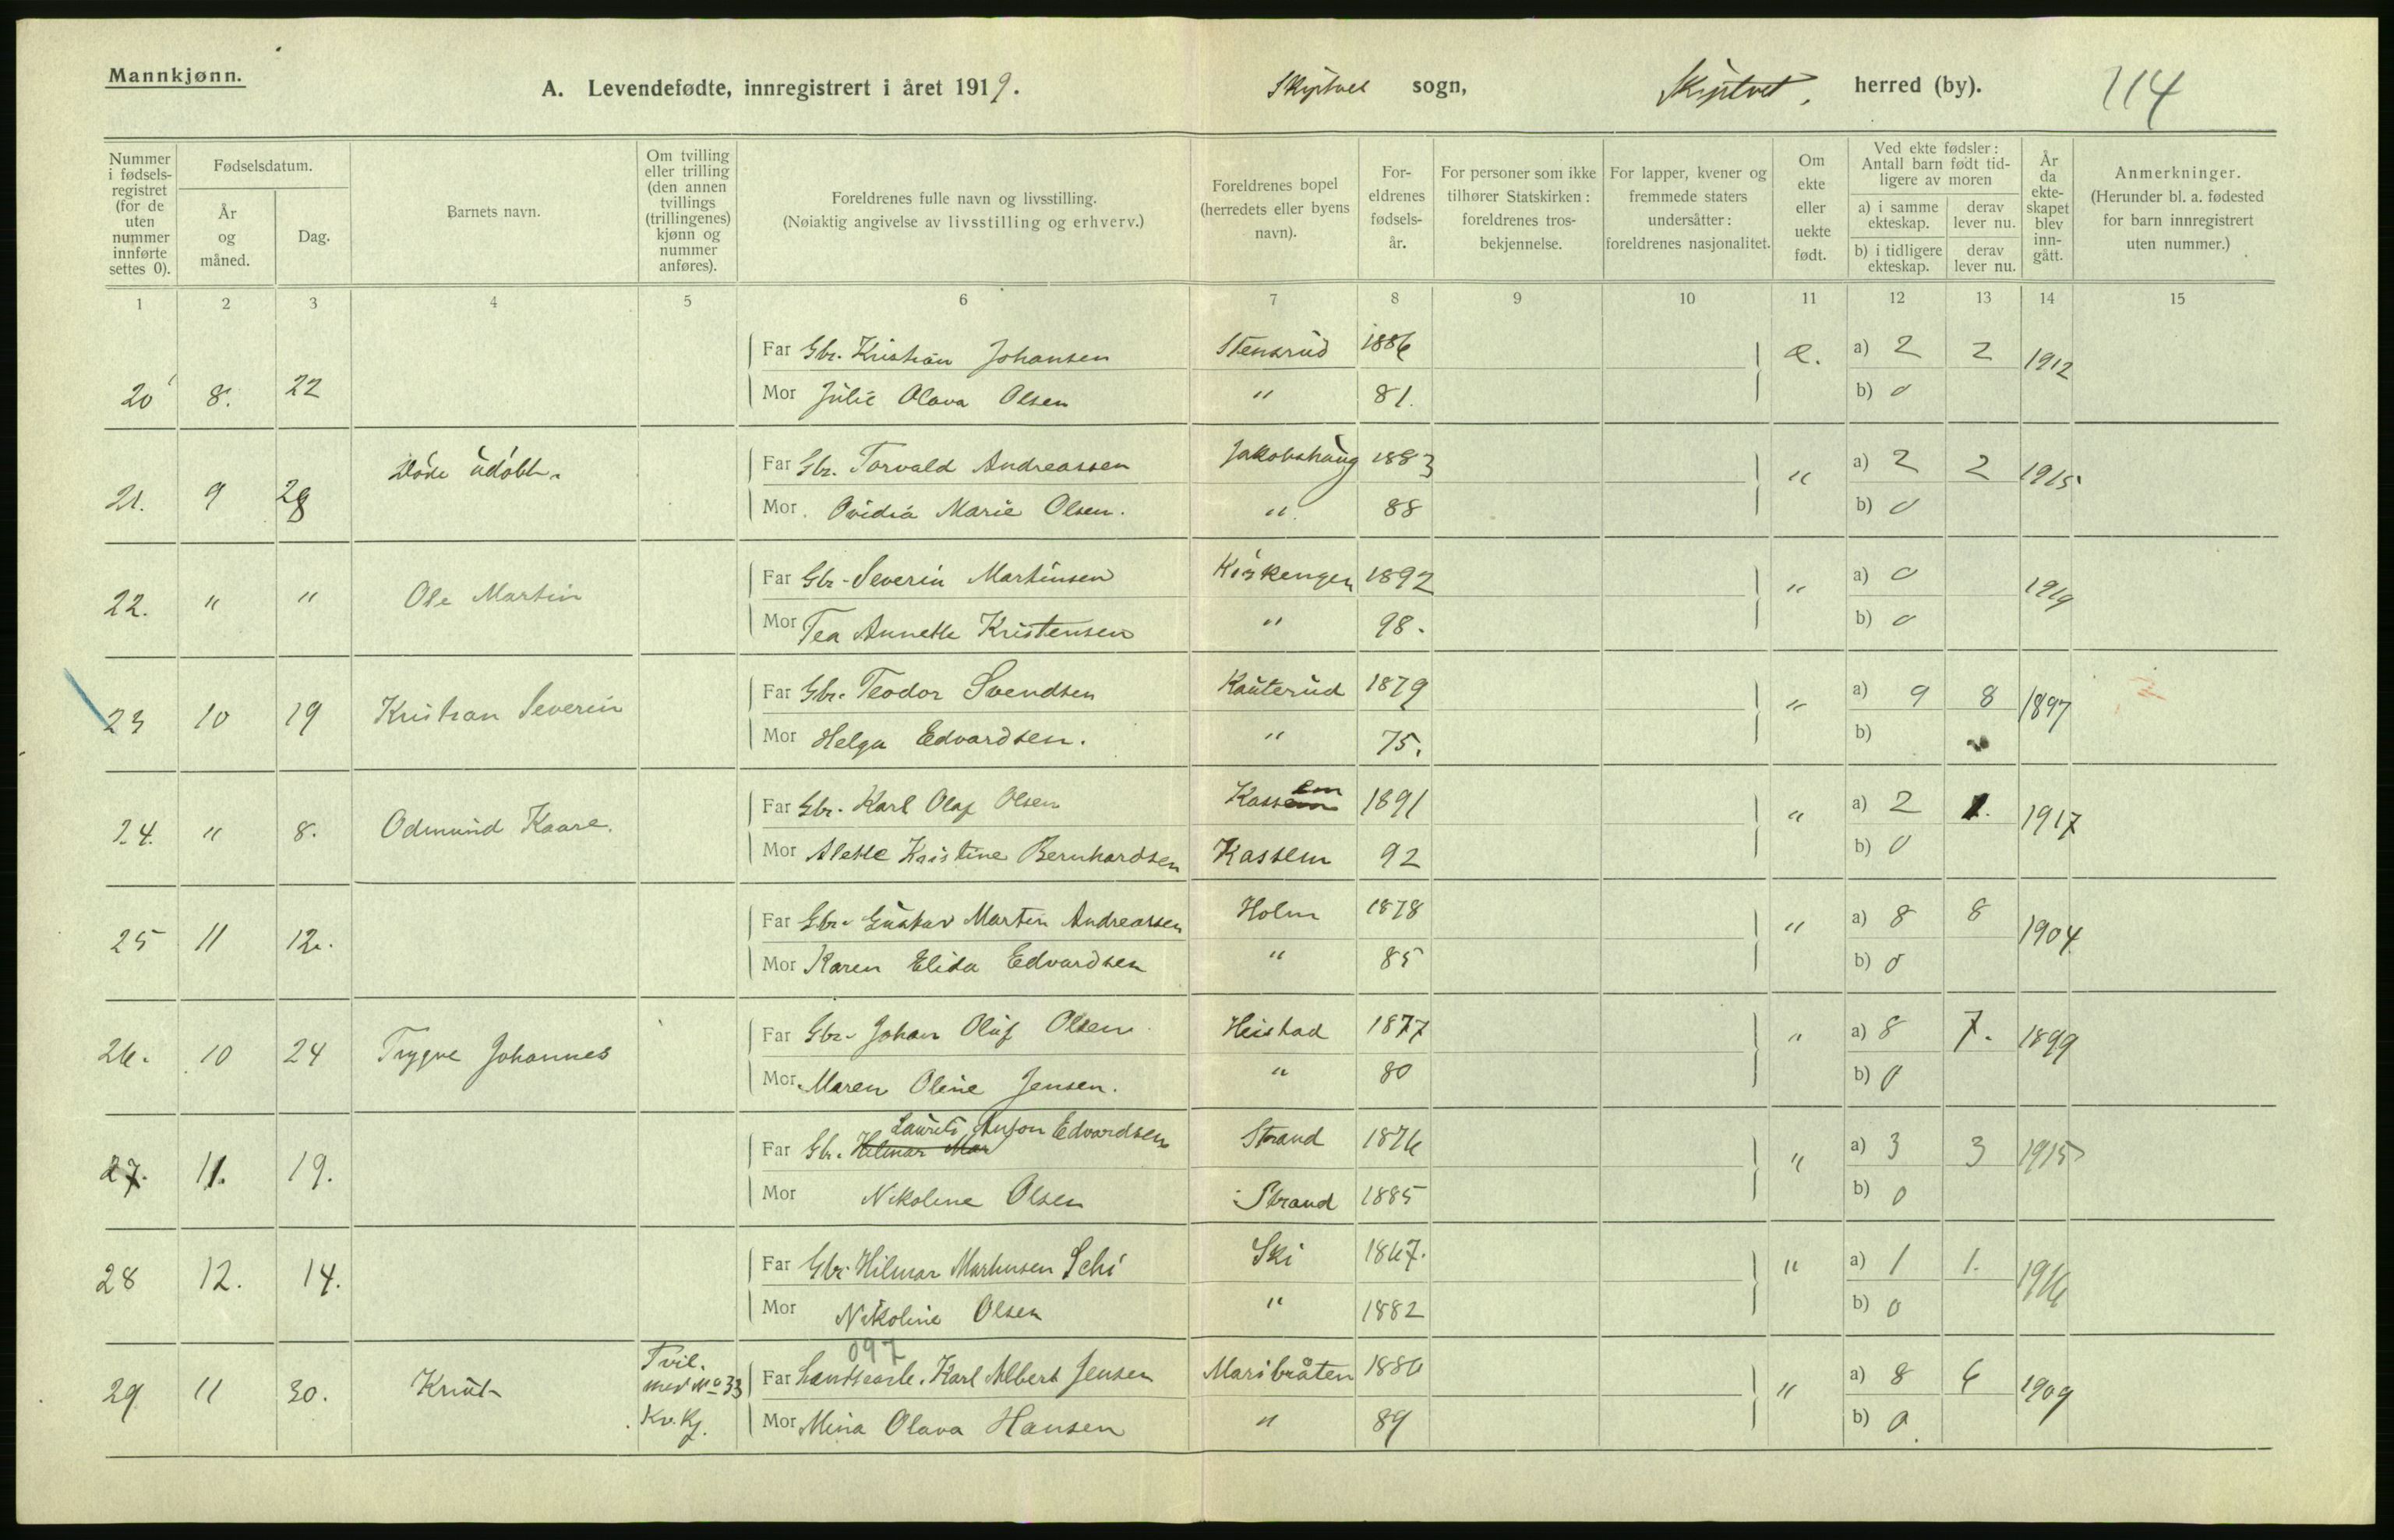 Mannkjønn.
A. Levendefødte, innregistrert i året 1919.
Skiptvet sogn,
Skiptvet, herred (by).
114
Nummer i fødsels-registret (for de uten nummer innførte settes 0).
Fødselsdatum.
År og måned.
Dag.
Barnets navn.
Om tvilling eller trilling (den annen tvillings (trillingenes) kjønn og nummer anføres).
Foreldrenes fulle navn og livsstilling.
(Nøiaktig angivelse av livsstilling og erhverv.)
Foreldrenes bopel (herredets eller byens navn).
For-eldrenes fødsels-år.
For personer som ikke tilhører Statskirken: foreldrenes tros-bekjennelse.
For lapper, kvener og fremmede staters undersåtter: foreldrenes nasjonalitet.
Om ekte eller uekte født.
Ved ekte fødsler: Antall barn født tid-ligere av moren
a) i samme ekteskap.
derav lever nu.
b) i tidligere ekteskap.
derav lever nu.
År da ekte-skapet blev inn-gått.
Anmerkninger.
(Herunder bl. a. fødested for barn innregistrert uten nummer.)
1 2 3 4 5 6 7 8 9 10 11 12 13 14 15
Far Gbr. Kristian Johansen Stensrud 1886 e. a) 2 2 1912
20 8. 22
Mor Julie Olava Olsen " 81. b) 0
Døde udøbt.
Far Gbr. Torvald Andreassen Jakobshaug 1883 " a) 2 2 1915
21. 9 28
Mor Ovidia Marie Olsen. " 88 b) 0
Far Gbr. Severin Martinsen Kirkengen 1892 " a) 0 1919
22. " " Ole Martin
Mor Tea Annette Kristensen " 98. b) 0
Far Gbr. Teodor Svendsen Kauterud 1879 " a) 9 8 1897
23 10 19 Kristian Severin
Mor Helga Edvardsen. " 75. b)
em
Far Gbr. Karl Olaf Olsen Kassem 1891 " a) 2 1. 1917
24. " 8. Odmund Kaare.
Mor Alette Kristine Bernhardsen Kassem 92 b) 0
Far Gbr. Gustav Martin Andreassen Holm 1878 " a) 8 8 1904
25 11 12.
Mor Karen Elida Edvardsen " 85 b) 0
Far Gbr. Johan Oluf Olsen Heistad 1877 " a) 8 7. 1899
26. 10 24 Trygve Johannes
Mor Maren Oline Jensen. " 80 b) 0
Laurits Anton Edvardsen
Far Gbr. Hilmar Mar Strand 1876 " a) 3 3 1915
27. 11. 19.
Mor Nikoline Olsen Strand 1885 b) 0
Far Gbr. Hilmar Markusen Schi Ski 1867. " a) 1 1. 1916
28 12. 14.
Mor Nikoline Olsen " 1882 b) 0
097
Tvil. med No 33 Kv. Kj.
Far Karl Albert Jensen Maribråten 1886 " a) 8 6 1909
29 11 30. Knut
Mor Mina Olava Hansen " 89 b) 0